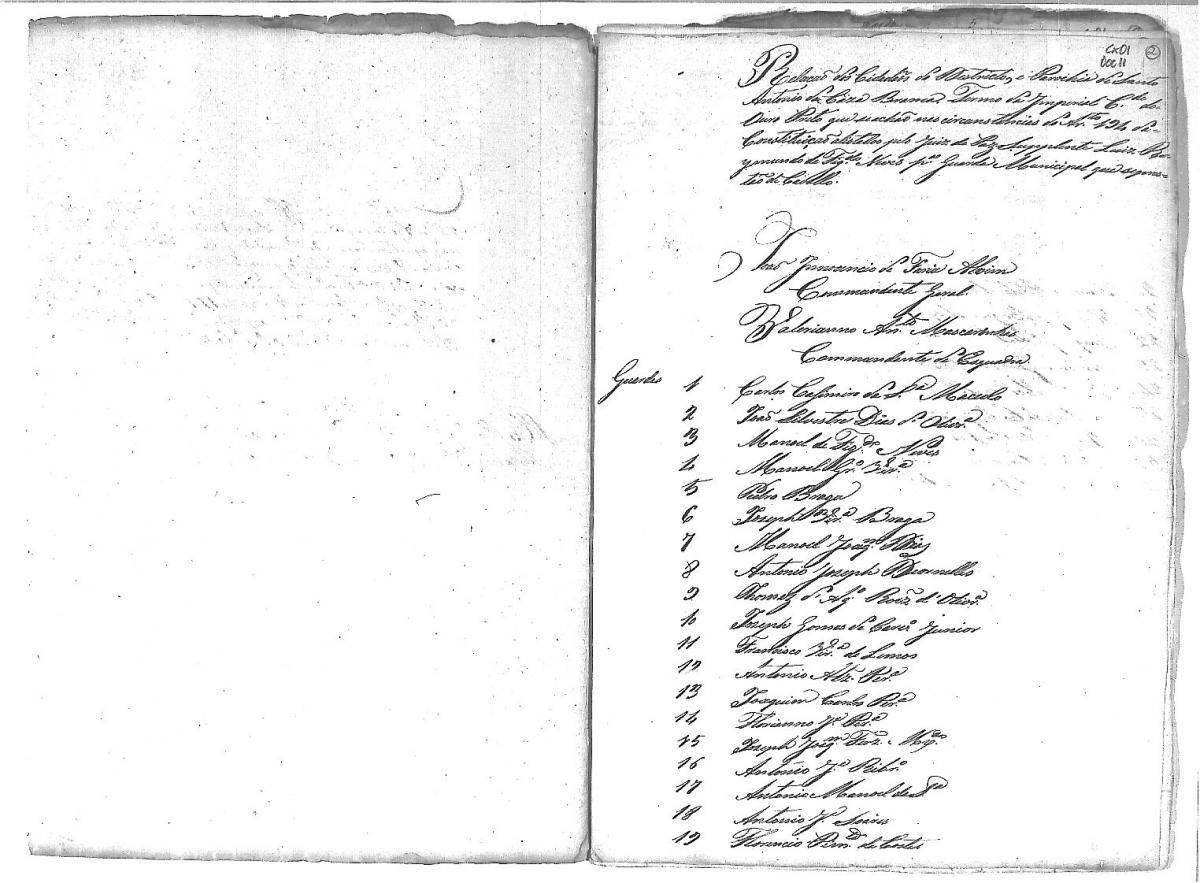 Cx01
Doc 11
2
Relação dos Cidadãos do Destricto, e Parochia de Santo
Antonio da Caza Branca Termo da Imperial C.de do
Ouro Preto que se achão nas circunstancias do Ar.to 194 da
Constituição alistados pelo Juiz de Paz Supplente Luiz Ra-
ymundo de Fig.do Neves p.a Guarda Municipal que
João Innocencio de Faria Alvim
Commandante Geral.
Valerianno An.to Mascarenhas
Commandante de Esquadra
Guardas
1 Carlos Casimiro da S.a Macedo
2 João Silvestre Dias d' Olivr.a
3 Manoel de Fig.do Neves
4 Manoel
5 Pedro Braga
6 Joseph Braga
7 Manoel Joaq.m Dias
8 Antonio Joseph Dornellas
9 Thomaz d' Aq.o Roiz d' Olivr.a
10 Joseph Gomes da Junior
11 Francisco de Lemos
12 Antonio Alz. Per.a
13 Joaquim Carlos Per.a
14 Florianno J.e Per.a
15 Joseph Joaq.m
16 Antonio J.e Ribr.o
17 Antonio Manoel da S.a
18 Antonio J.e Soares
19 Florencio